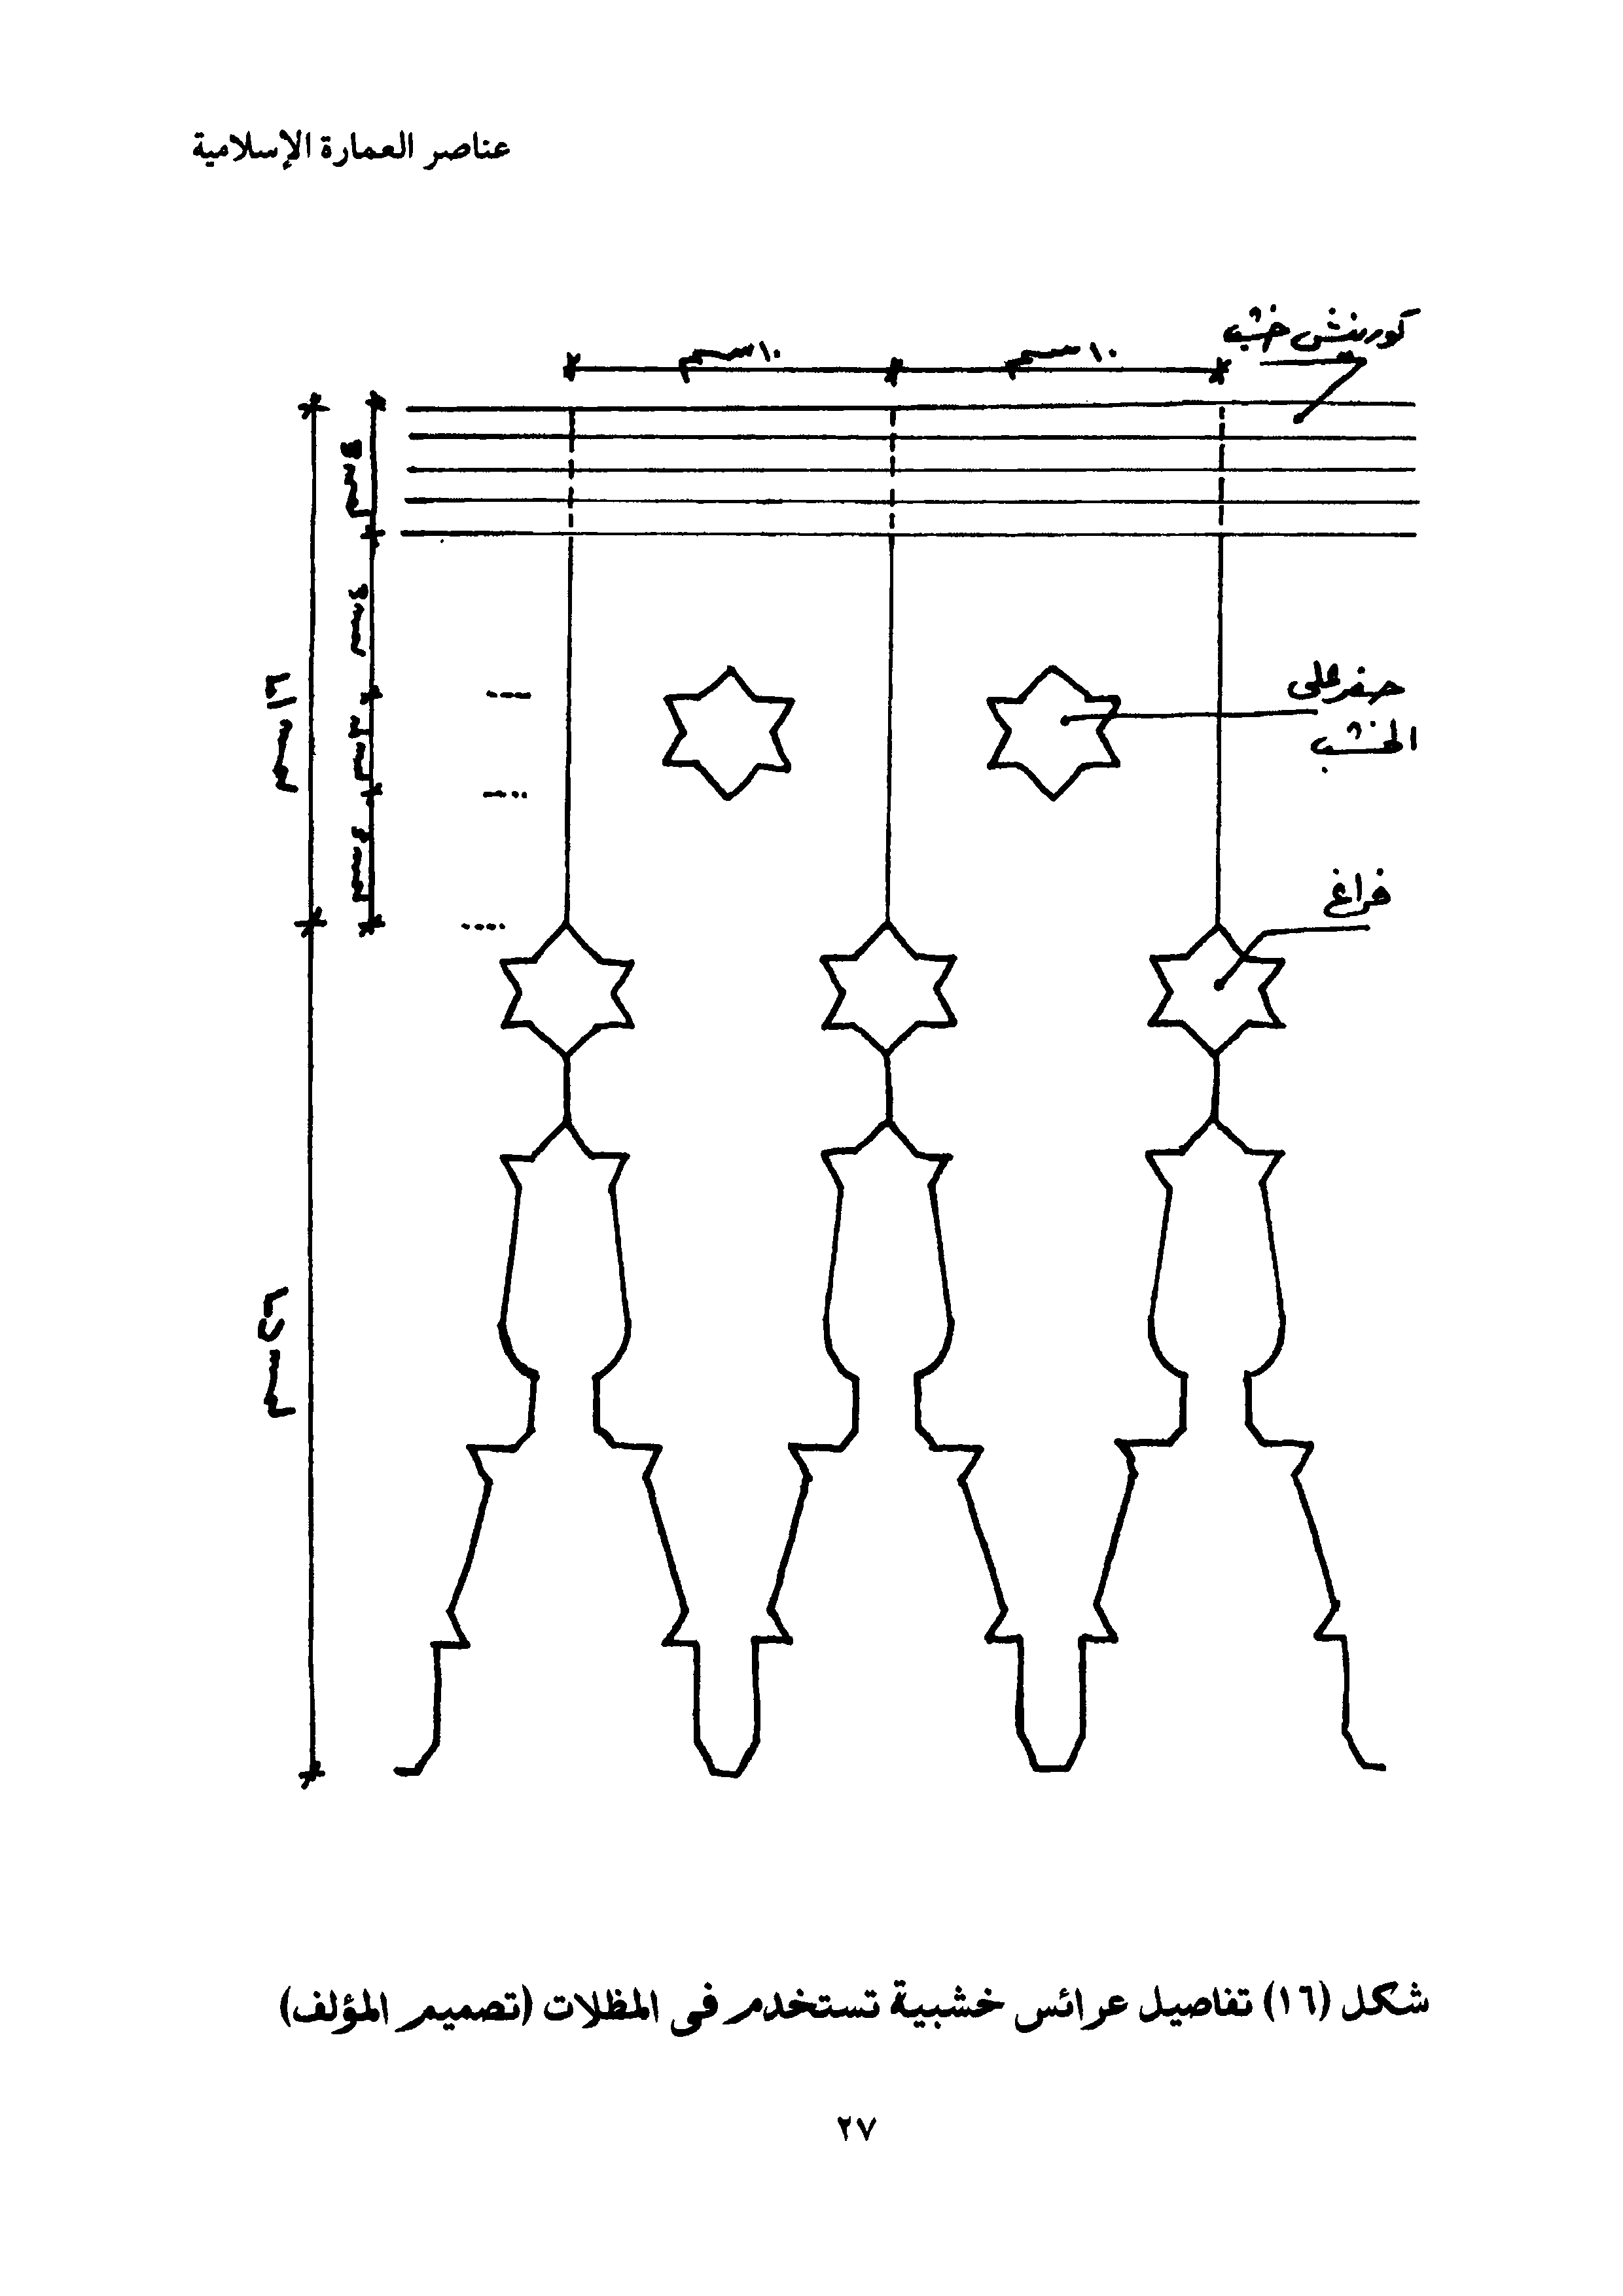 عناصر العمارة الإسلامية
كورنيش خشب
١٠ سم
١٠ سم
٤ سم
٣ سم
١٦ سم
حفر على
الخشب
فراغ
٢٦ سم
شكل (١٦) تفاصيل عرائس خشبية تستخدم فى المظلات (تصميم المؤلف)
٢٧